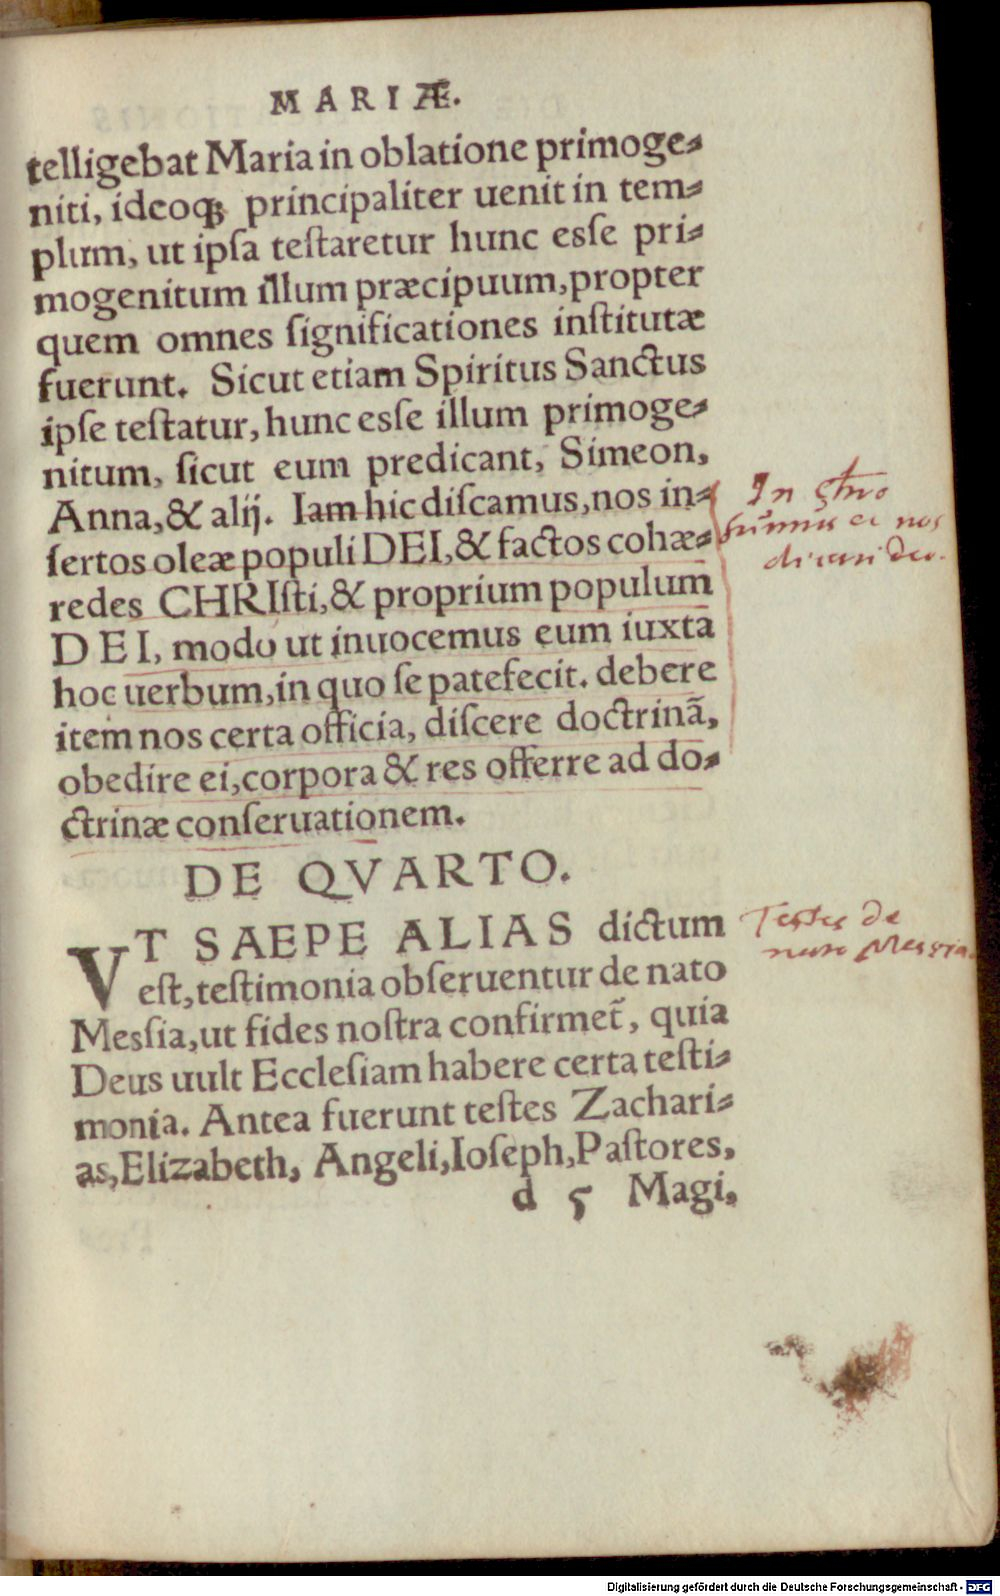 MARIÆ.
telligebat Maria in oblatione primoge⸗
niti, ideoqꝫ principaliter uenit in tem⸗
plum, ut ipſa teſtaretur hunc esſe pri⸗
mogenitum illum præcipuum, propter
quem omnes ſignificationes inſtitutæ
fuerunt. Sicut etiam Spiritus Sanctus
ipſe teſtatur, hunc esſe illum primoge⸗
nitum, ſicut eum predicant, Simeon,
Anna, & alij. Iam hic diſcamus, nos in⸗
ſertos oleæ populi DEI, & factos cohæ⸗
redes CHRIſti, & proprium populum
DEI, modo ut inuocemus eum iuxta
hoc uerbum, in quo ſe patefecit. debere
item nos certa officia, diſcere doctrinã,
obedire ei, corpora & res offerre ad do⸗
ctrinæ conſeruationem.
In
nos
DE QVARTO.
VT SAEPE ALIAS dictum
eſt, teſtimonia obſeruentur de nato
Mesſia, ut fides noſtra confirmet̃, quia
Deus uult Eccleſiam habere certa teſti⸗
monia. Antea fuerunt teſtes Zachari⸗
as, Elizabeth, Angeli, Ioſeph, Paſtores,
d 5 Magi,
Testes de
nato Messia.
Digitalisierung gefördert durch die Deutsche Forschungsgemeinschaft - DFG